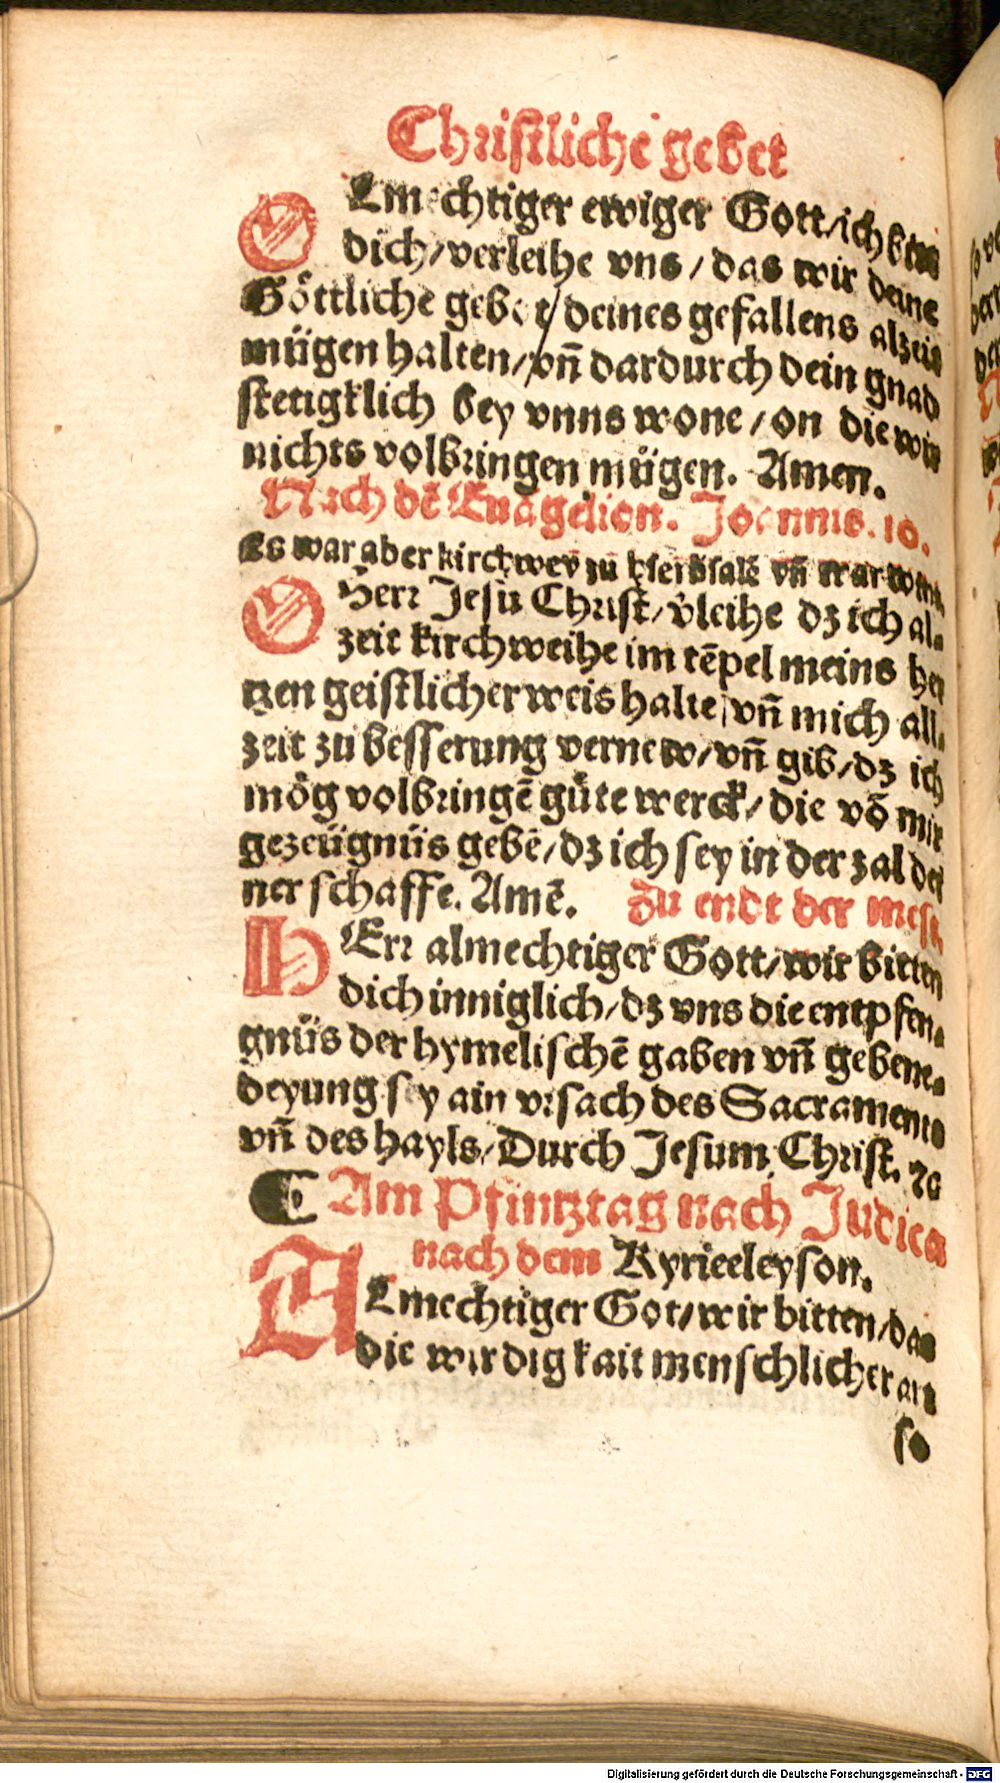 Christliche gebet
O Almechtiger ewiger Gott/ich bitt
dich/verleihe vns/das wir deine
Göttliche gebot/deines gefallens alzeit
mügen halten/vñ dardurch dein gnad
stetigklich bey vnns wone/on die wir
nichts volbringen mügen. Amen.
Nach dẽ Euagelion. Joannis. 10.
Es war aber kirchwey zu vñ war
O Herr Jesu Christ/v̄leihe dz ich al-
zeit kirchweihe im tẽpel meins her
tzen geistlicher weis halte/vñ mich all-
zeit zu besserung vernew/vñ gib/dz ich
mög volbringẽ gůte werck/die võ mir
gezeügnüs gebẽ/dz ich sey in der zal dei
ner schaffe. Amẽ. Zu endt der mess.
HErr almechtiger Gott/wir bitten
dich inniglich/dz vns die entpfen-
gnüs der hymelischẽ gaben vñ gebene-
deyung sey ain vrsach des Sacraments
vñ des hayls/Durch Jesum Christ. ꝛc
¶ Am Pfintztag nach Judica
nach dem Kyrieeleyson.
ALmechtiger Got/wir bitten/das
die wirdigkait menschlicher art
so
Digitalisierung gefördert durch die Deutsche Forschungsgemeinschaft - DFG